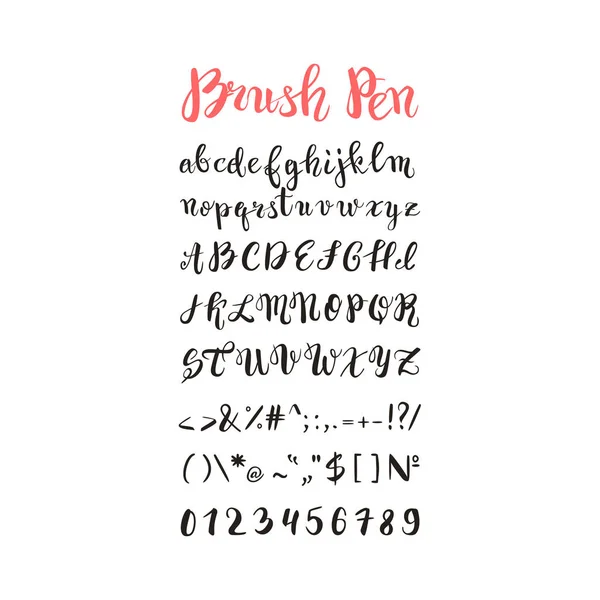 Brush Pen
abcdefghijklm
nopqrstuvwxyz
ABCDEFGHI
JKLMNOPQR
STUVWXYZ
<>&%#^;:,.=+-!?/
()\*@~‟„"$[]№
0123456789